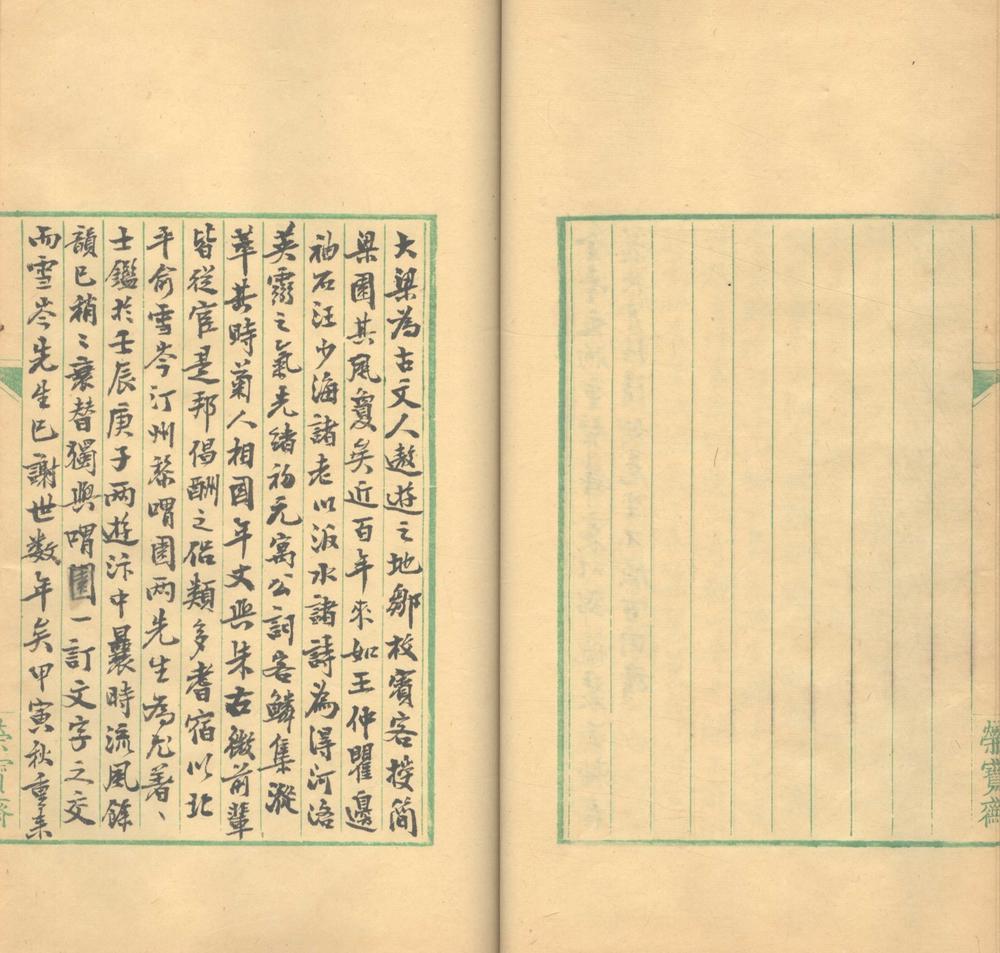 榮寶齋
大梁為古文人遨遊之地鄒枚賓客授簡
梁園其風夐矣近百年來如王仲瞿邊
袖石汪少海諸老以派水諸詩為得河洛
英靈之氣光緒初元寓公詞客鱗集漎
萃其時菊人相國年丈與朱古微前輩
皆從宦是邦倡酬之侶類多耆宿以北
平俞雪岑汀州黎喟園兩先生為尤著、
士鑑於壬辰庚子兩遊汴中曩時流風餘
韻已稍〻衰替獨與喟園一訂文字之交
而雪岑先生已謝世数年矣甲寅秋重来
榮寶齋